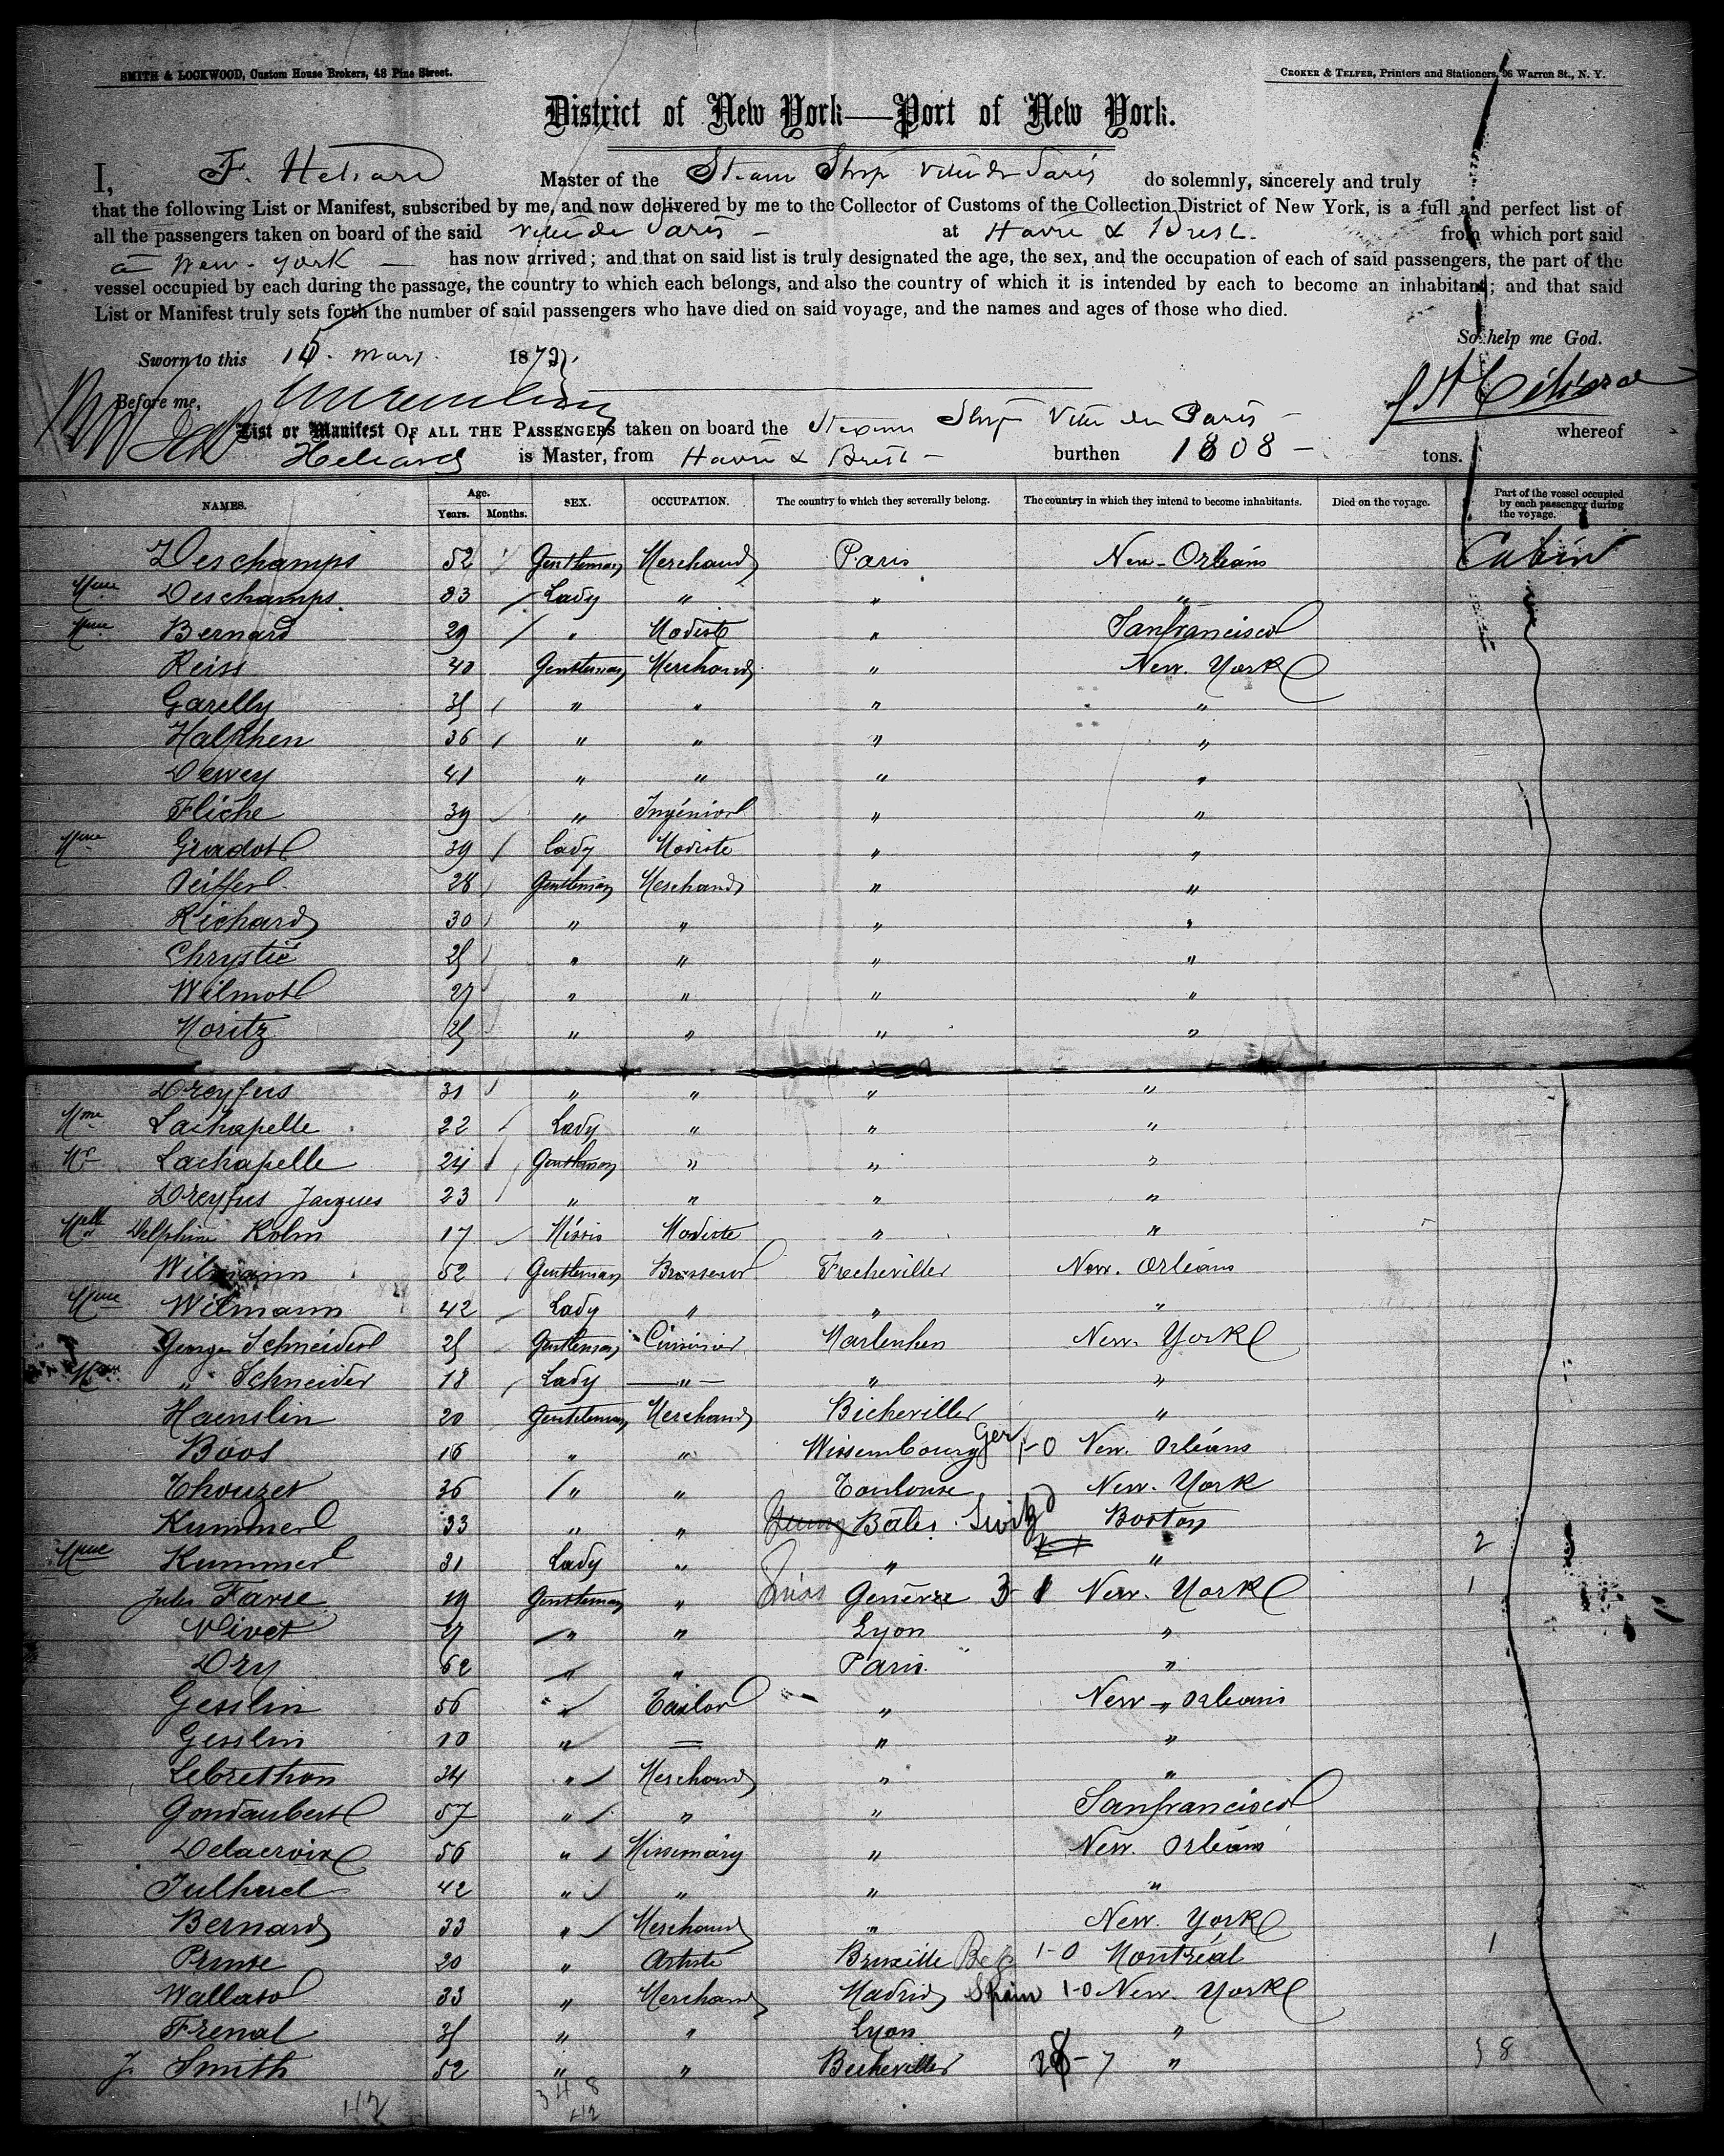 SMITH & LOCKWOOD, Custom House Brokers, 48 Pine Street.
CROKER & TELFER, Printers and Stationers, 96 Warren St., N. Y.
District of New York—Port of New York.
I, F. Heliard Master of the Steam Ship Ville de Paris do solemnly, sincerely and truly
that the following List or Manifest, subscribed by me, and now delivered by me to the Collector of Customs of the Collection District of New York, is a full and perfect list of
all the passengers taken on board of the said Ville de Paris at Havre & Brest from which port said
à New-York has now arrived; and that on said list is truly designated the age, the sex, and the occupation of each of said passengers, the part of the
vessel occupied by each during the passage, the country to which each belongs, and also the country of which it is intended by each to become an inhabitant; and that said
List or Manifest truly sets forth the number of said passengers who have died on said voyage, and the names and ages of those who died.
So help me God.
Sworn to this 15. mars. 187
Before me,
List or Manifest OF ALL THE PASSENGERS taken on board the Steam Ship Ville de Paris whereof
Heliard is Master, from Havre & Brest burthen 1808 tons.
NAMES. Age. Years. Months. SEX. OCCUPATION. The country to which they severally belong. The country in which they intend to become inhabitants. Died on the voyage. Part of the vessel occupied by each passenger during the voyage.
Deschamps 52 Gentleman Merchand Paris New-Orléans Cabin
Mme Deschamps 33 Lady " " "
Mme Bernard 29 " Modiste " Sanfrancisco
Reiss 40 Gentleman Merchand " New. York
Garelly 35 " " " "
Halphen 36 " " " "
Dewey 41 " " " "
Fliche 39 " Ingénior " "
Mme Gradot 39 Lady Modiste " "
Peiffer 28 Gentleman Merchand " "
Richard 30 " " " "
Chrystie 25 " " " "
Wilmot 27 " " " "
Moritz 25 " " " "
Dreyfus 31 " " " "
Mme Lachapelle 22 Lady " " "
Mr Lachapelle 24 Gentleman " " "
Dreyfus Jacques 23 " " " "
Melle Delphine Kolm 17 Missis Modiste " "
Wilmann 52 Gentleman Brasseur Frecheviller New. Orléans
Mme Wilmann 42 Lady " " "
George Schneider 25 Gentleman Cuisinier Marlenhen New. York
Mme " Schneider 18 Lady —"— " "
Haenslin 20 Gentleman Merchand Bicheviller "
Boos 16 " " Wissembourg Ger 1-0 New. Orléans
Thouzet 36 " " Toulouse New. York
Kummer 33 " " Bâles. Switzd Boston
Mme Kummer 31 Lady " " " 2
Jules Favre 19 Gentleman " Genève 3 1 New. York 1
Vivet 27 " " Lyon "
Dry 62 " " Paris. "
Gesslin 56 " Tailor " New " Orléans
Gesslin 10 " = " "
Lebrethon 34 " Merchand " "
Gondaubert 57 " " " Sanfrancisco
Delacroix 56 " Missemary " New. Orléans
Julhuel 42 " " " "
Bernard 33 " Merchand " New. York
Prume 20 " Artiste Bruxelle Belg 1-0 Montréal 1
Wallasol 33 " Merchand Madrid Spain 1-0 New. York
Frenal 35 " " Lyon "
J. Smith 52 " " Becheviller 28-7 " 8
42 348
42